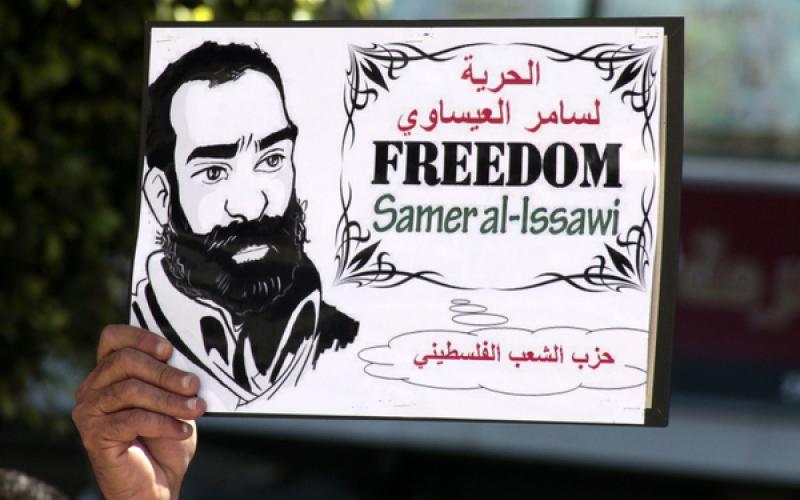 الحرية
لسامر العيساوي
FREEDOM
Samer al-Issawi
حزب الشعب الفلسطيني